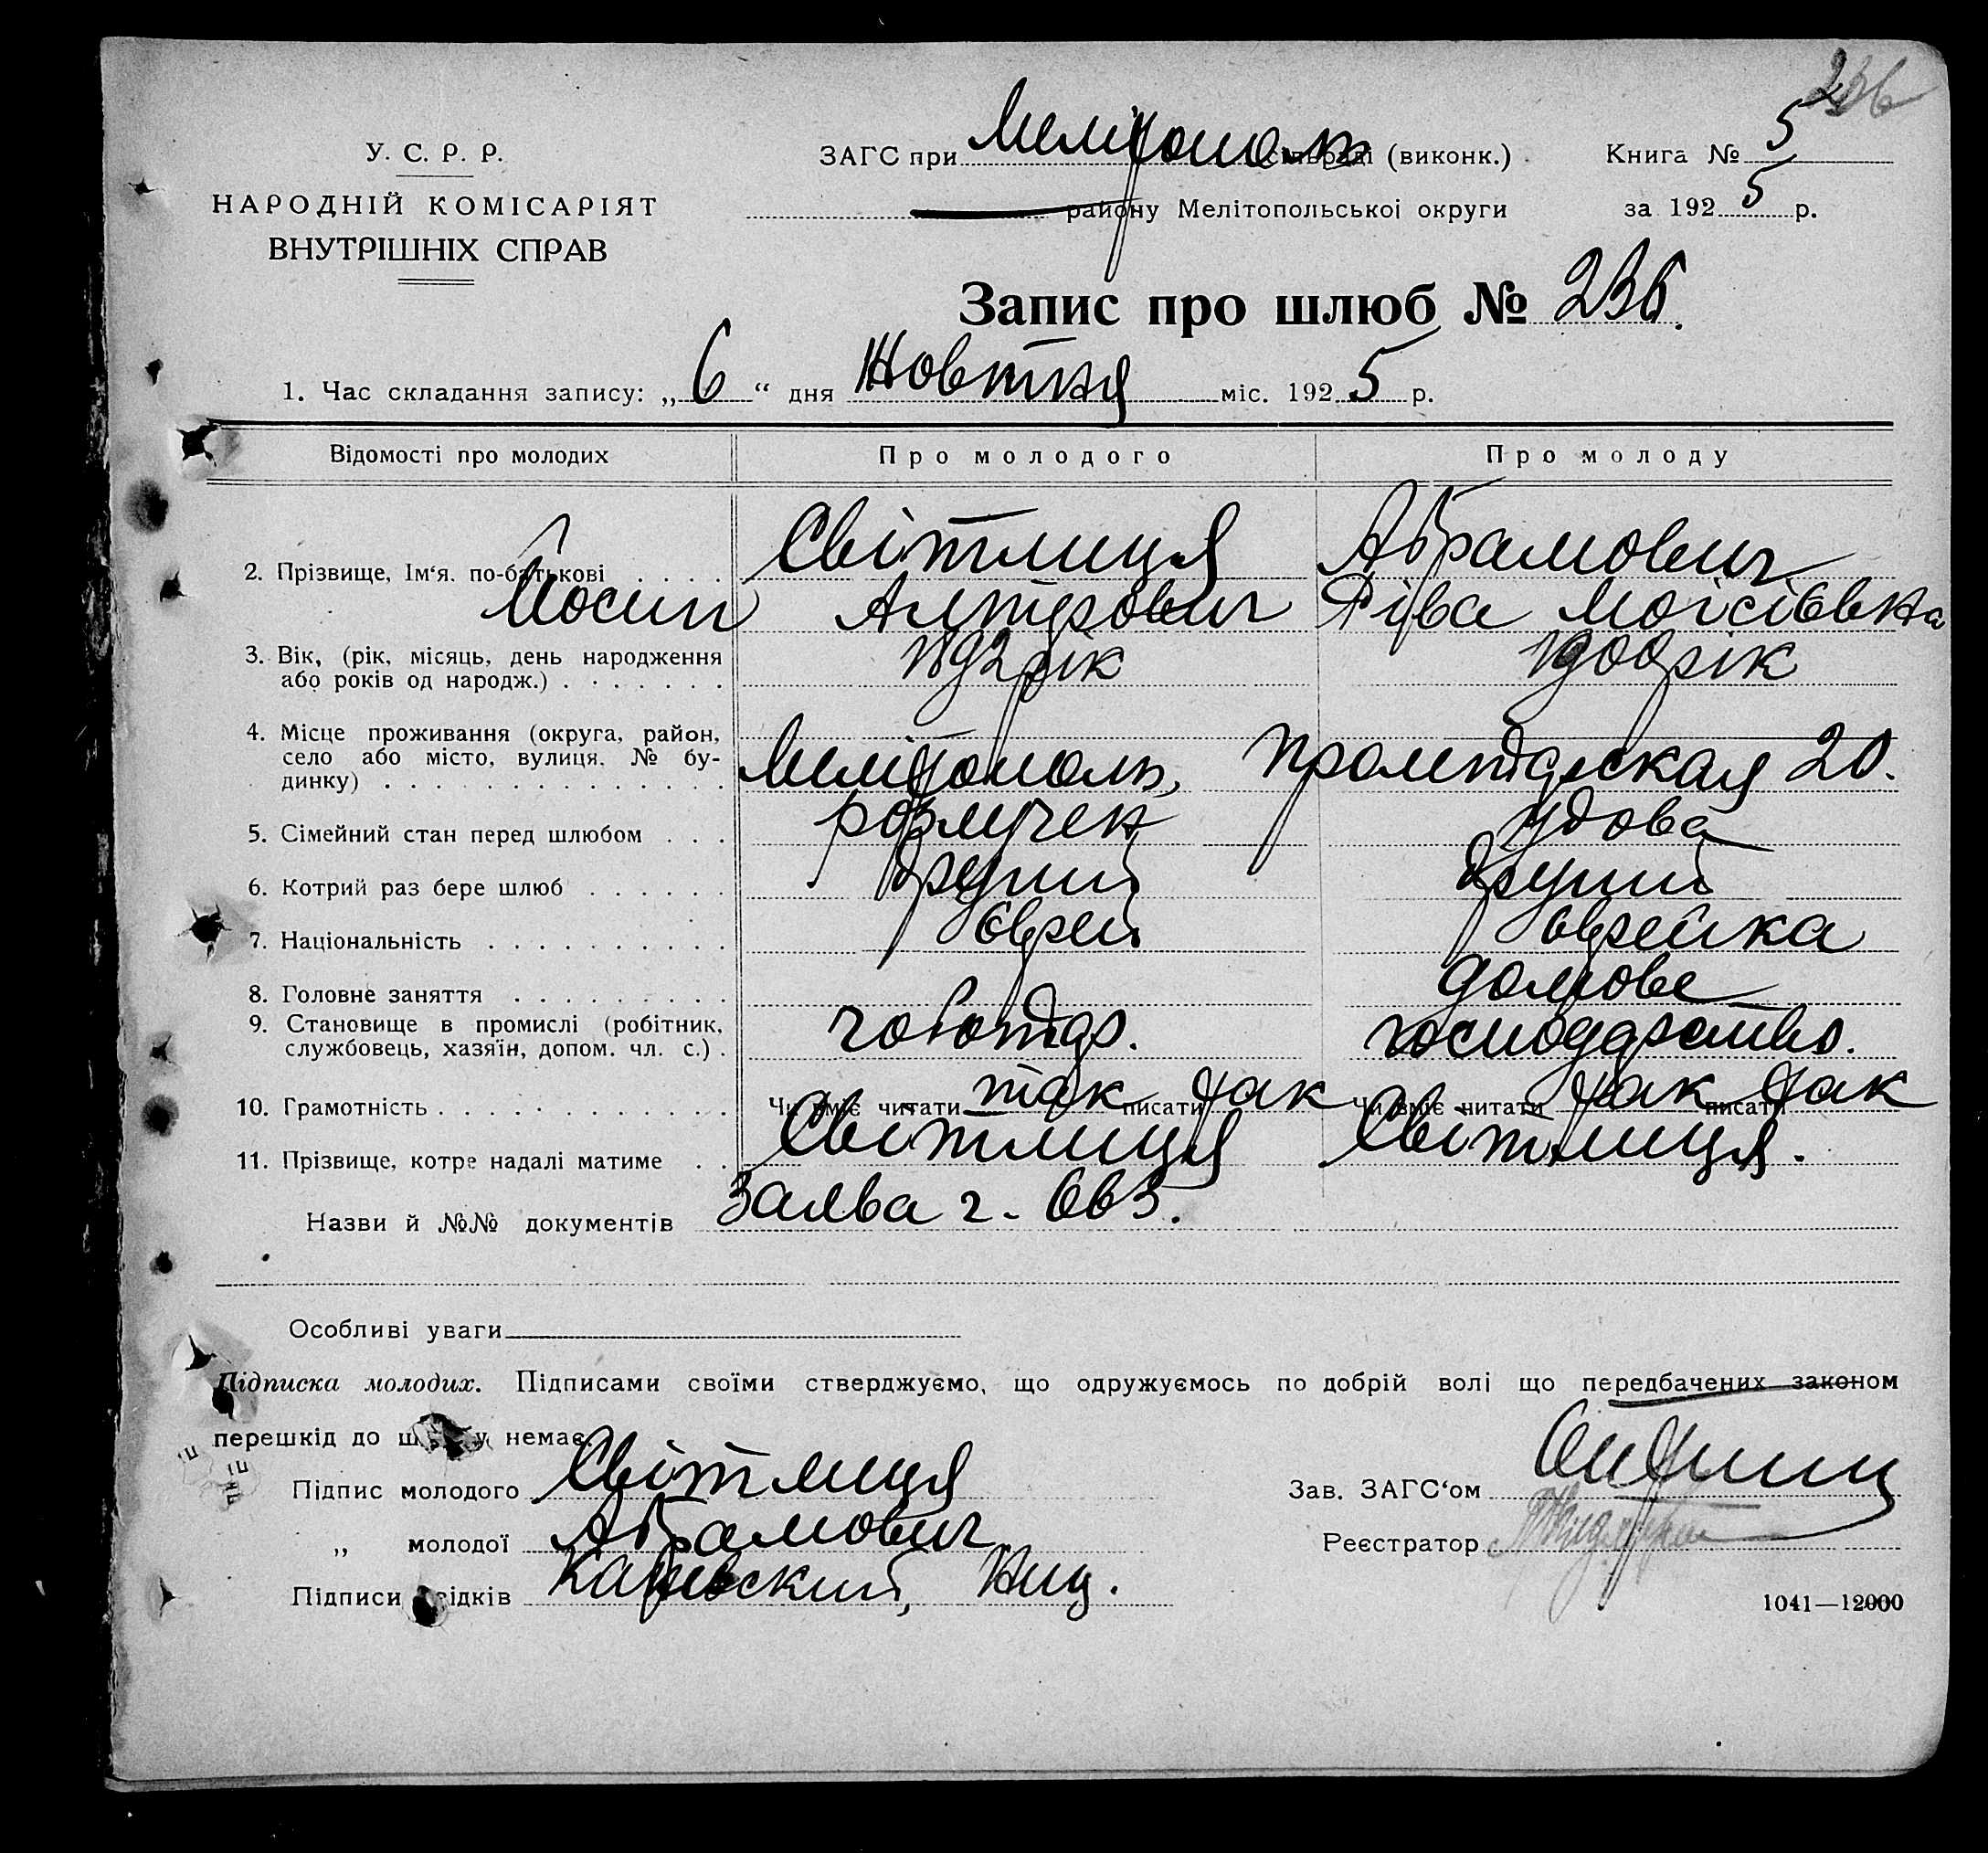 236
У. С. Р. Р.
НАРОДНІЙ КОМІСАРІЯТ
ВНУТРІШНІХ СПРАВ
ЗАГС при Мелітополь сільраді (виконк.)
району Мелітопольської округи
Книга № 5
за 1925 р.
Запис про шлюб № 236.
1. Час складання запису: „6“ дня Жовтня міс. 1925 р.
Відомості про молодих Про молодого Про молоду
2. Прізвище, Ім'я. по-батькові . . . . Світлиця Абрамович
Йосип Алтерович Ріва Мойсіївна
3. Вік, (рік, місяць, день народження або років од народж.) . . . . . . . 1892 рік 1900 рік
4. Місце проживання (округа, район,
село або місто, вулиця, № бу-
динку) . . . . . . . . . . . . . . Мелітополь, 20.
5. Сімейний стан перед шлюбом . . . розлучен удова
6. Котрий раз бере шлюб . . . . . . другий другий
7. Національність . . . . . . . . . . єврей єврейка
8. Головне заняття . . . . . . . . . домове
9. Становище в промислі (робітник,
службовець, хазяїн, допом. чл. с.) . господарство.
10. Грамотність . . . . . . . . . . . . Чи вміє читати так писати так Чи вміє читати так писати так
11. Прізвище, котре надалі матиме . . Світлиця Світлиця.
Назви й №№ документів Заява
Особливі уваги
Підписка молодих. Підписами своїми стверджуємо, що одружуємось по добрій волі що передбачених законом
перешкід до шлюбу немає.
Підпис молодого Світлиця
Зав. ЗАГС‘ом
„ молодої Абрамович
Реєстратор
Підписи свідків
1041—12000